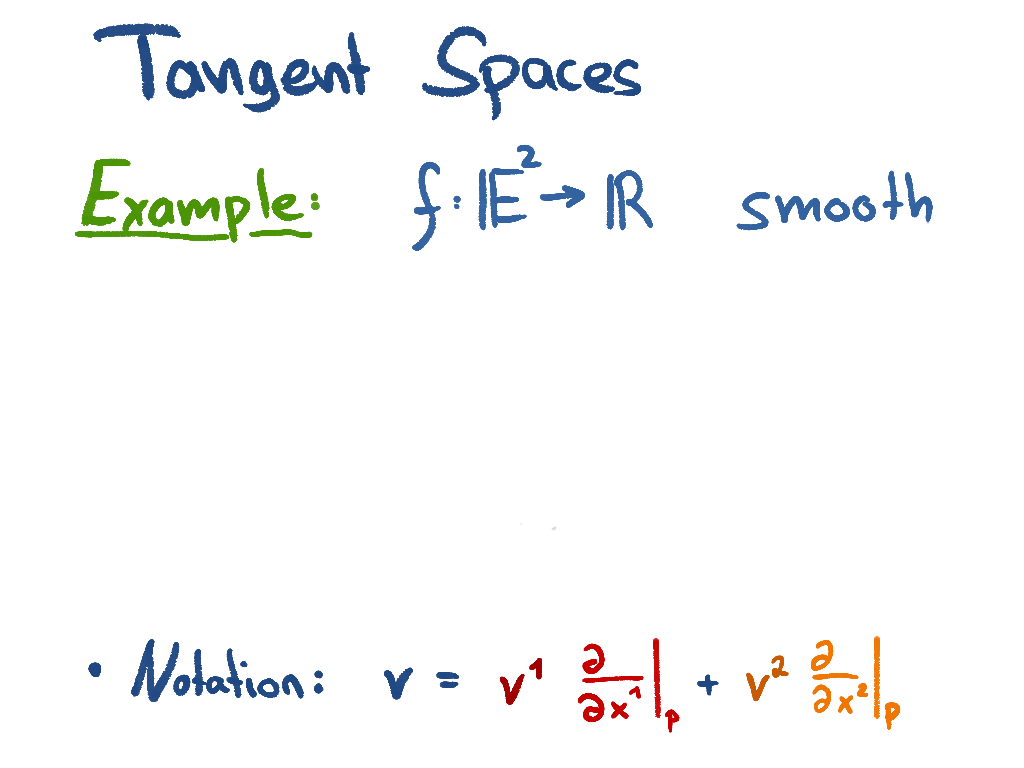 Tangent Spaces
Example: f: 𝔼² → ℝ smooth
• Notation: v = v¹ ∂/∂x¹|ₚ + v² ∂/∂x²|ₚ